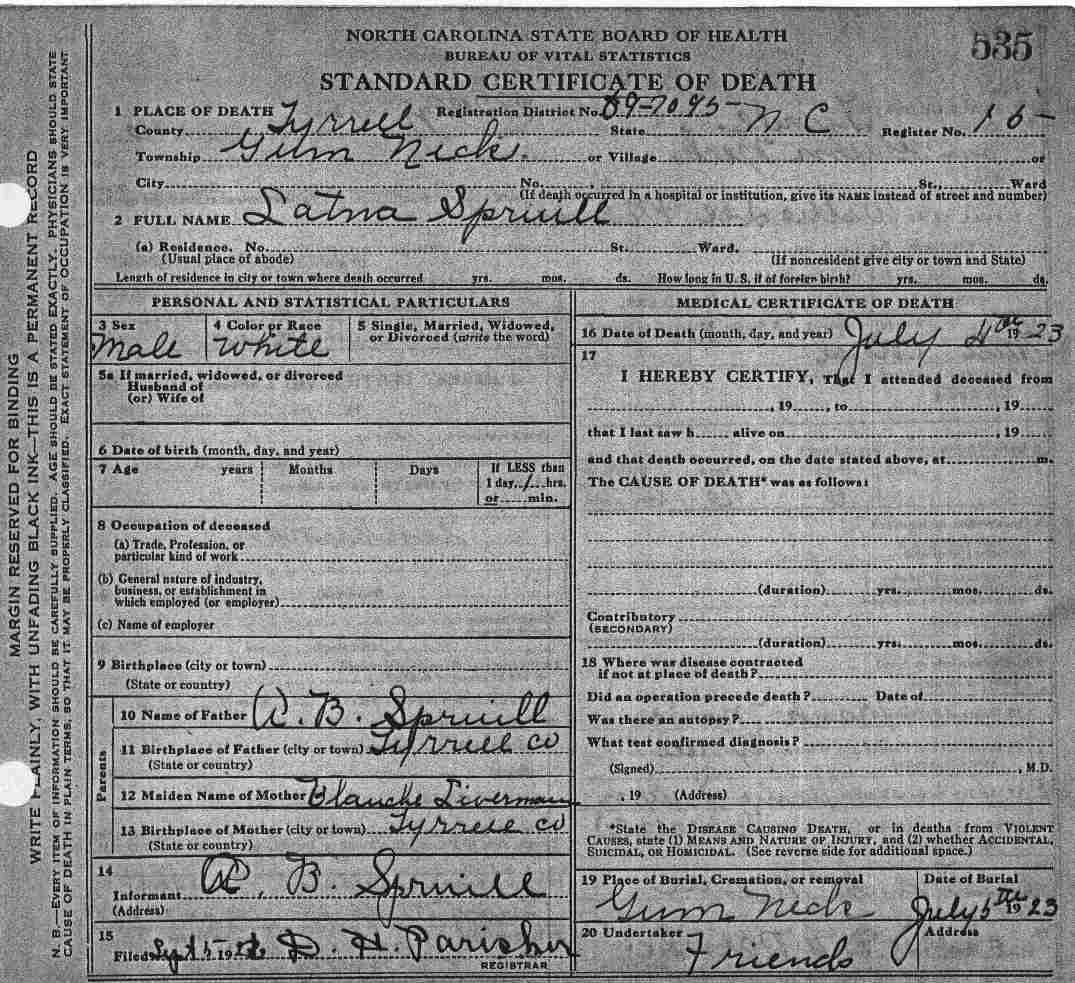 NORTH CAROLINA STATE BOARD OF HEALTH
BUREAU OF VITAL STATISTICS
535
STANDARD CERTIFICATE OF DEATH
1 PLACE OF DEATH Registration District No. 89-7095-
County Tyrrell State N C Register No. 16-
Township Gum Neck. or Village or
City No. , St., Ward
(If death occurred in a hospital or institution, give its NAME instead of street and number)
2 FULL NAME Latna Spruill
(a) Residence. No. St. Ward.
(Usual place of abode) (If nonresident give city or town and State)
Length of residence in city or town where death occurred yrs. mos. ds. How long in U. S. if of foreign birth? yrs. mos. ds.
PERSONAL AND STATISTICAL PARTICULARS
3 Sex 4 Color or Race 5 Single, Married, Widowed,
or Divorced (write the word)
Male White
5a If married, widowed, or divorced
Husband of
(or) Wife of
6 Date of birth (month, day, and year)
7 Age years Months Days If LESS than
1 day, 1 hrs.
or min.
8 Occupation of deceased
(a) Trade, Profession, or
particular kind of work
(b) General nature of industry,
business, or establishment in
which employed (or employer)
(c) Name of employer
9 Birthplace (city or town)
(State or country)
Parents
10 Name of Father A. B. Spruill
11 Birthplace of Father (city or town) Tyrrell co
(State or country)
12 Maiden Name of Mother Blanche Liverman
13 Birthplace of Mother (city or town) Tyrrell co
(State or country)
14
Informant A. B. Spruill
(Address)
15
Filed Sept 5- 19 D. H. Parisher
REGISTRAR
MEDICAL CERTIFICATE OF DEATH
16 Date of Death (month, day, and year) July 4th 19 23
17
I HEREBY CERTIFY, That I attended deceased from
, 19 , to , 19
that I last saw h alive on , 19
and that death occurred, on the date stated above, at m.
The CAUSE OF DEATH* was as follows:
(duration) yrs. mos. ds.
Contributory
(SECONDARY)
(duration) yrs. mos. ds.
18 Where was disease contracted
if not at place of death?
Did an operation precede death? Date of
Was there an autopsy?
What test confirmed diagnosis?
(Signed) , M.D.
, 19 (Address)
*State the DISEASE CAUSING DEATH, or in deaths from VIOLENT
CAUSES, state (1) MEANS AND NATURE OF INJURY, and (2) whether ACCIDENTAL,
SUICIDAL, OR HOMICIDAL. (See reverse side for additional space.)
19 Place of Burial, Cremation, or removal Date of Burial
Gum Neck July 5 19 23
20 Undertaker Address
Friends
MARGIN RESERVED FOR BINDING
WRITE PLAINLY, WITH UNFADING BLACK INK—THIS IS A PERMANENT RECORD
N. B.—EVERY ITEM OF INFORMATION SHOULD BE CAREFULLY SUPPLIED. AGE SHOULD BE STATED EXACTLY. PHYSICIANS SHOULD STATE
CAUSE OF DEATH IN PLAIN TERMS, SO THAT IT MAY BE PROPERLY CLASSIFIED. EXACT STATEMENT OF OCCUPATION IS VERY IMPORTANT